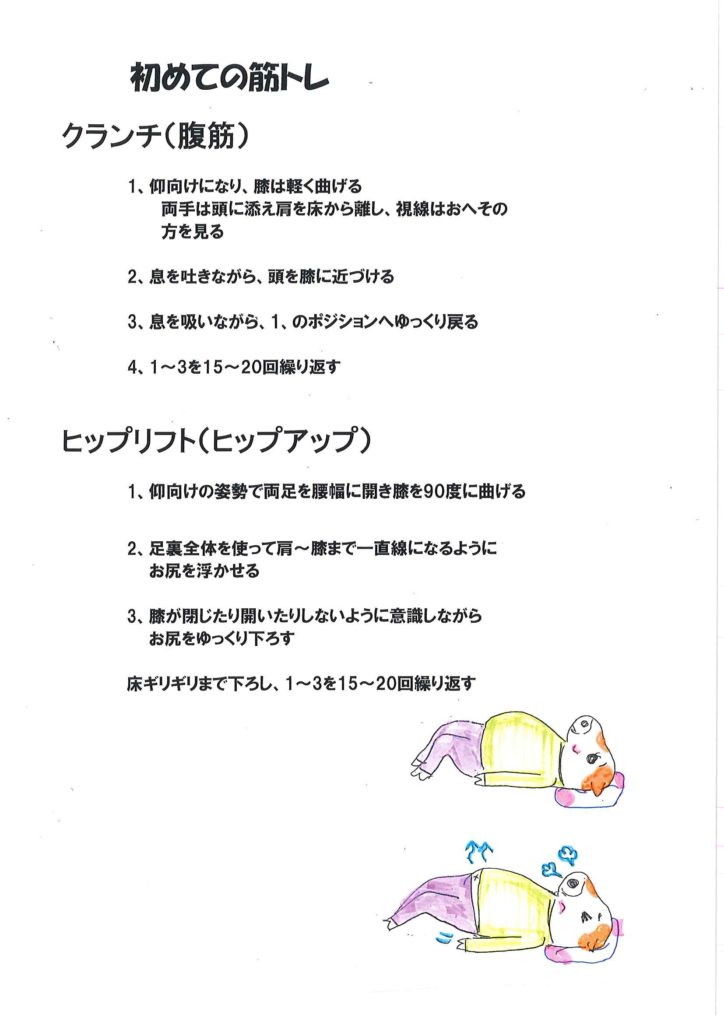 初めての筋トレ
クランチ(腹筋)
1、仰向けになり、膝は軽く曲げる
両手は頭に添え肩を床から離し、視線はおへその
方を見る
2、息を吐きながら、頭を膝に近づける
3、息を吸いながら、1、のポジションへゆっくり戻る
4、1～3を15～20回繰り返す
ヒップリフト(ヒップアップ)
1、仰向けの姿勢で両足を腰幅に開き膝を90度に曲げる
2、足裏全体を使って肩～膝まで一直線になるように
お尻を浮かせる
3、膝が閉じたり開いたりしないように意識しながら
お尻をゆっくり下ろす
床ギリギリまで下ろし、1～3を15～20回繰り返す